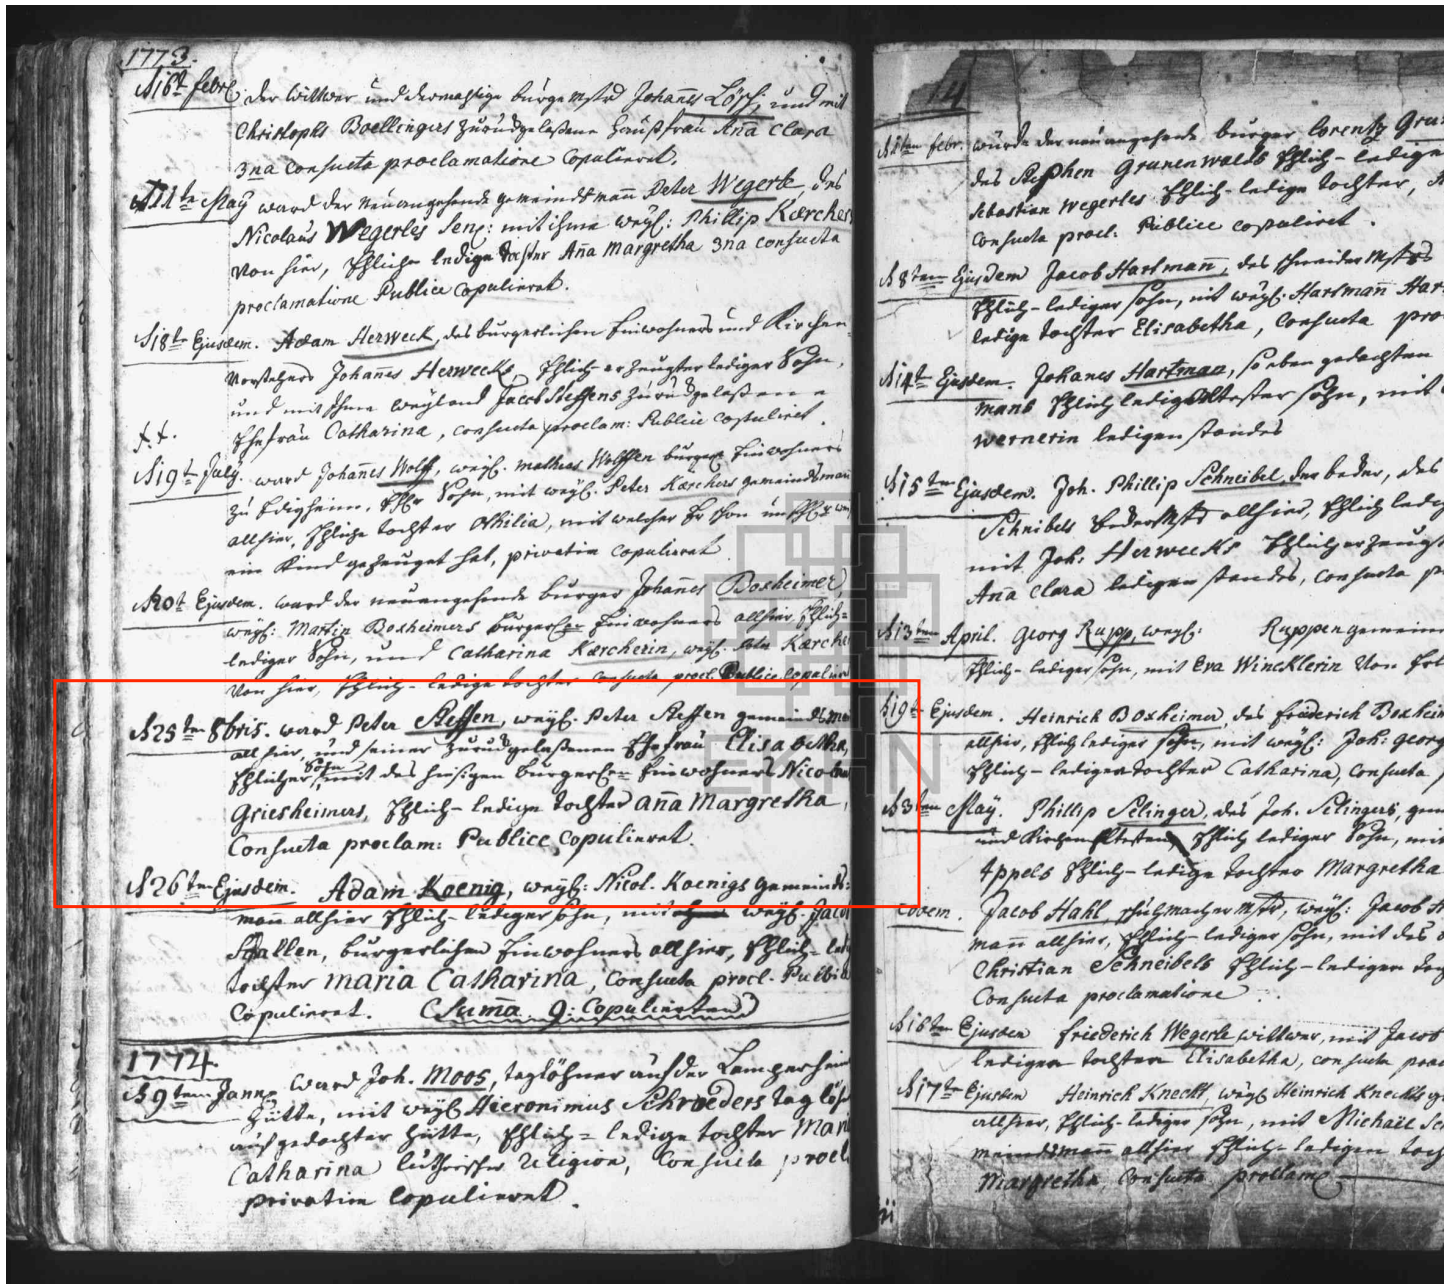 1773.
d 16t. febr. der Wittwer und dermahlige burgemstr Johannes Lösch, und mit
Christophs Boellingers zurückgelaßene Haußfrau Aña Clara
3na consueta proclamatione copulieret.
d 11te May ward der neuangehende gemeindsmañ Peter Wegerle, des
Nicolaus Wegerles Sen: mit ihme weyl: Phillip Kærchers
von hier, Ehliche ledige Tochter Aña Margretha 3na consueta
proclamatione Publice copulieret.
d 18te Ejusdem. Adam Herweck, des bürgerlichen Einwohners und Kirchen-
Vorstehers Johañes Herwecks, Ehlich erzeugter lediger Sohn,
und mit Ihme weyland Jacob Steffens zurückgelaßene
Ehefrau Catharina, consueta proclam: Publice copulieret.
d 19t July. ward Johañes Wolff, weyl. Mathias Wolffen burgerl Einwohners
zu Edigheim, Ehl Sohn, mit weyl. Peter Kærchers gemeindsman
allhier, Ehliche tochter Othilia, mit welcher Er schon
ein Kind gezeuget hat, privatim copulieret.
d 20t Ejusdem. ward der neuangehende burger Johañes Boxheimer,
weyl: Martin Boxheimers burgerlen Einwohners allhier Ehlich-
lediger Sohn, und Catharina Kærcherin, weyl. Kærche
von hier, Ehlich-ledige tochter consueta procl. Publice copulieret
d 25ten 8bris. ward Peter Steffen, weyl. Peter Steffen gemeindsma
allhier, und seiner zurückgelaßenen Ehefrau Elisabetha,
Ehlicher Sohn, mit des hiesigen burgerlen Einwohners Nicolaus
Griesheimers, Ehlich-ledige tochter aña Margretha,
Consueta proclam: Publice, copulieret.
d 26ten Ejusdem. Adam Koenig, weyl: Nicol. Koenigs gemeinds-
mañ allhier Ehlich-lediger Sohn, mit weyl. Jacob
burgerlichen Einwohners allhier, Ehlich-led
tochter Maria Catharina, consueta procl. Public
copulieret. (Summa 9: Copulierten)
1774.
d 9ten Jann. ward Joh. Moos, taglöhner auf der Lamperheim
Hütte, mit weyl Hieronimus Schroeders taglöh
auf gedachter Hütte, Ehlich-ledige tochter Mari
Catharina lutherischer Religion, consueta procl
privatim copulieret.
14
d ten febr. wurde der neuangehende burger Lorentz Gru
des Stephen Grunenwalds Ehlich-lediger
Sebastian Wegerles Ehlich-ledige tochter,
consueta procl: Publice copulieret.
d 8ten Ejusdem Jacob Hartmañ, des schneider Mstrs
Ehlich-lediger Sohn, mit weyl: Hartmañ Har
ledige tochter Elisabetha, consueta pro
d 14te Ejusdem. Johanes Hartman, so eben gedachten
mans Ehlich lediger ältester Sohn, mit
Wernerin ledigen standes
d 15ten Ejusdem. Joh. Phillip Schneibel der beder, des
Schneibels bedermstrs allhier, Ehlich ledig
mit Joh: Herwecks Ehlich erzeugt
Aña Clara ledigen standes, consueta p
d 13ten April. Georg Rupp, weyl: Ruppen gemein
Ehlich-lediger Sohn, mit Eva Wincklerin von
d 19t Ejusdem. Heinrich Boxheimer, des friederich Boxheim
allhier, Ehlich lediger Sohn, mit weyl: Joh: Georg
Ehlich-lediger tochter Catharina, consueta p
d 3ten May. Phillip Selinger, des Joh. Selingers, gem
und Kirchen Eltesten Ehlich lediger Sohn, mit
Appels Ehlich-ledige tochter Margretha
Eodem. Jacob Hahl, schuhmacher Mstr, weyl: Jacob H
mañ allhier, Ehlich-lediger Sohn, mit des
Christian Schneibels Ehlich-lediger to
Consueta proclamatione
d 16ten Ejusdem friederich Wegerle wittwer, mit Jacob
lediger tochter Elisabetha, consueta proc
d 17te Ejusdem Heinrich Knecht, weyl Heinrich Knechts g
allhier, Ehlich-lediger Sohn, mit Michaël Sc
meindsmañ allhier Ehlich-ledigen toch
Margretha consueta proclam
EKHN